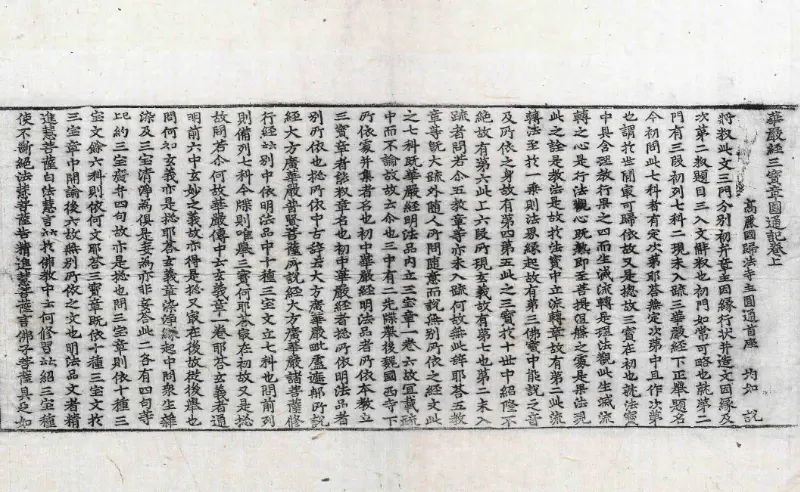 華嚴經三寶章圓通記卷上
高麗國歸法寺主圓通首座 均如 說
將釋此文三門分別初弁章主因緣行狀弁造文因緣及
次第二釋題目三入文解釋也初門如常可略也就第二
門有三段初列七科二現未入疏三華嚴經下正舉題名
今初問此七科者有定次第耶答無定次第中且作次第
也謂於世間家可歸依故又是揔故三寶在初也就法寶
中具含理教行果之四而生滅流轉是理法觀此生滅流
轉之心是行法觀心既熟即至菩提涅槃之處是果法現
此之詮是教法是故於法寶中立流轉章故有第二此流
轉法至於一乘則法界緣起故有第三佛寶中能說之音
及所依之身故有第四第五此之三寶於十世中紹隆不
絕故有第六此上六段所現玄義故有第七也第二未入
疏者問若尒五教章等亦未入疏何故無此辞耶答五教
章等旣大疏外随人所問随意而說無別所依之經文此
之七科旣華嚴經明法品內立三寶章一卷六故宜載疏
中而不論故故云尒也三中有二先牒舉後魏國西寺下
所依家幷集者名也初中華嚴經明法品者所依本教立
三寶章者能釋章名也初中華嚴經者揔所依明法品者
別所依也揔所依中古辞云大方廣華嚴毗盧遮那所說
經大方廣華嚴普賢菩薩所說經大方廣華嚴諸菩薩修
行經別中依明法品中十種三宝文立七科也問前列
則備列七科今牒則唯舉三寶何耶答㝡在初故又是揔
故問若尒何故華嚴傳中云玄義章一卷耶答玄義者通
明前六中玄妙之義故亦得是揔又㝡在後故從後舉也
問何知玄義亦是揔耶答玄義章淸淨緣起中問衆生雜
染及三宝淸淨為俱是妄為亦非妄答此二各有四句等
比約三宝弁四句故亦是揔也問三宝章則依十種三
宝文餘六科則依何文耶答三寶章旣依十種三宝文於
三宝章中開論後六故無別所依之文也明法品文者精
進慧菩薩白法慧言於佛教中云何修習紹三宝種
使不斷絕法慧菩薩告精進慧菩薩言佛子菩薩具足如